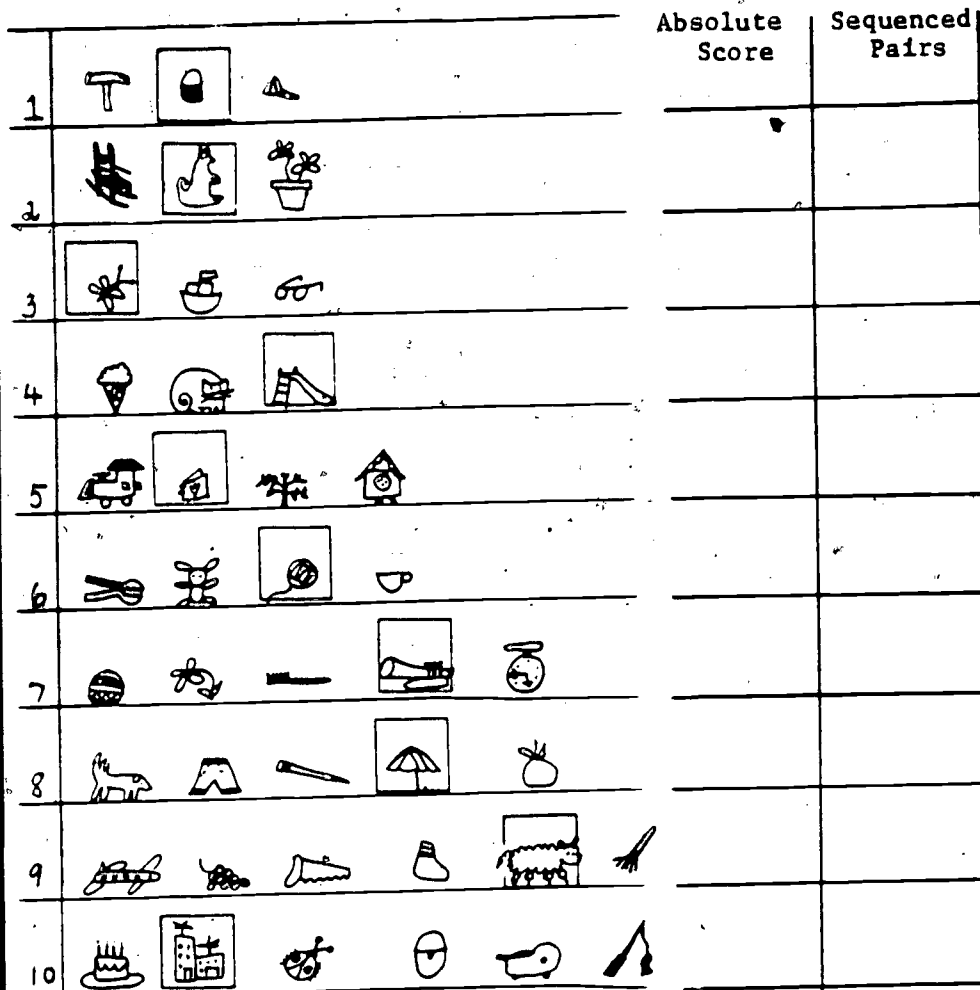 Absolute Score
Sequenced Pairs
1
2
3
4
5
6
7
8
9
10